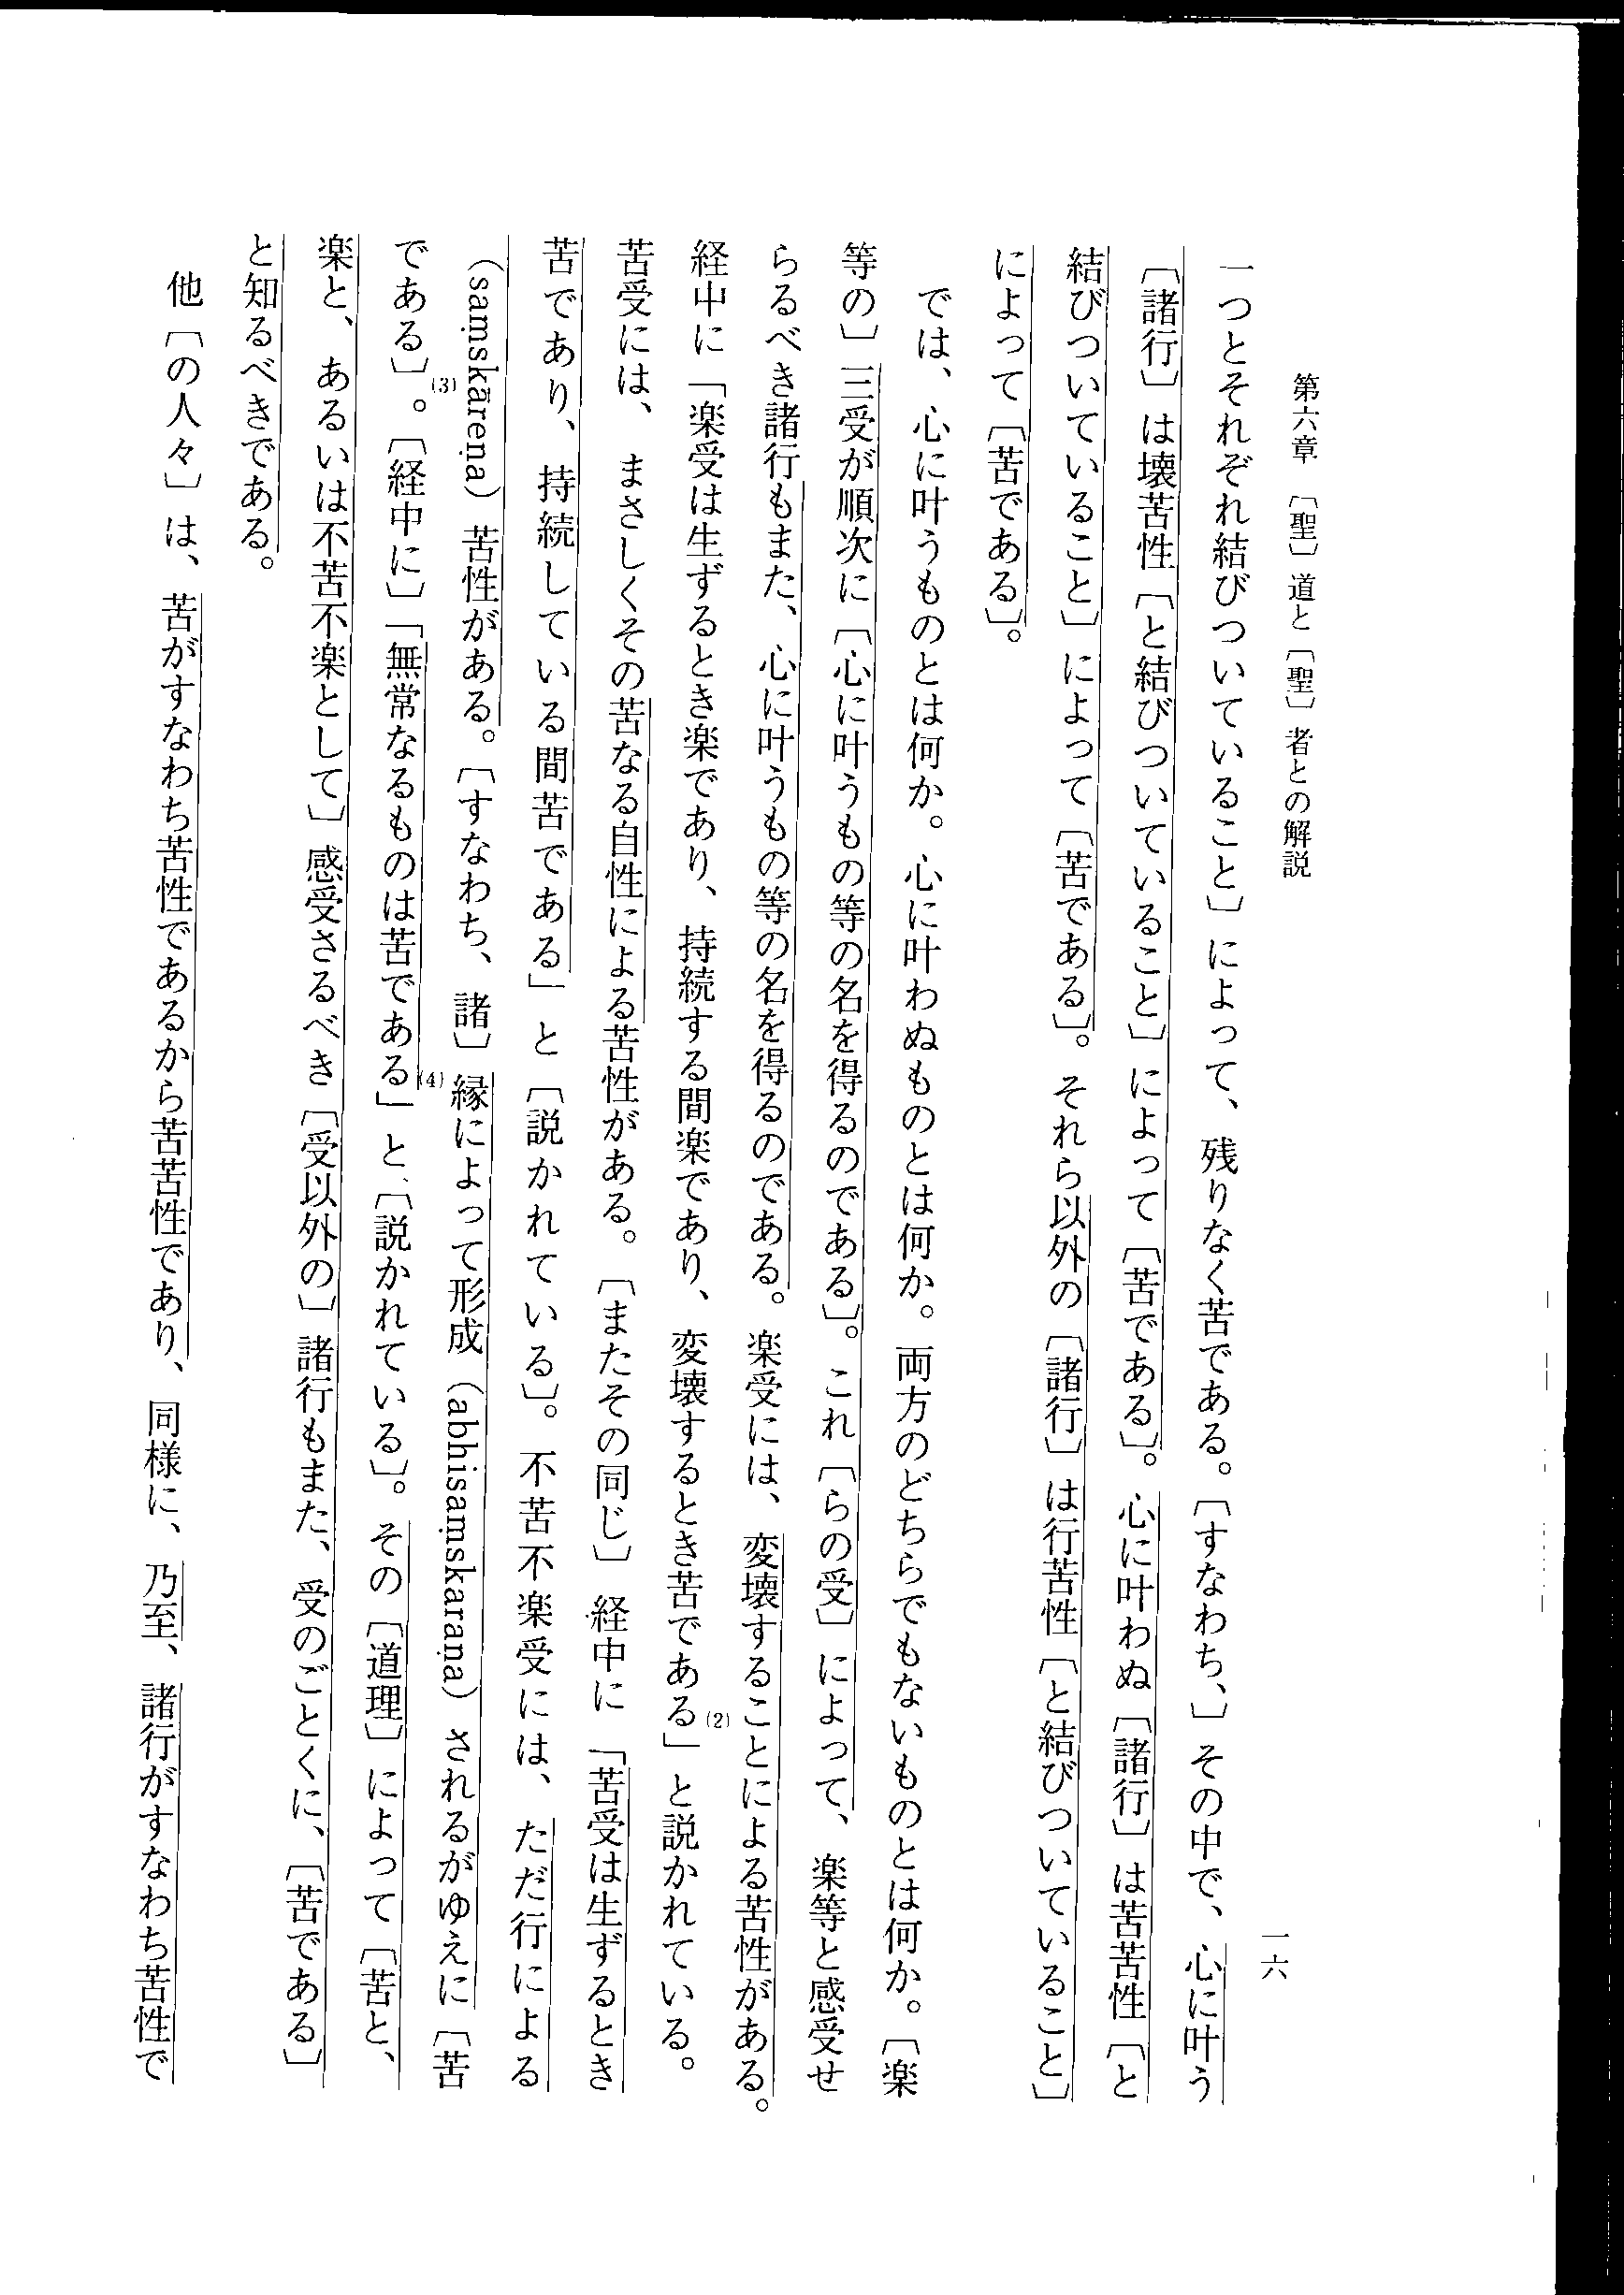 第六章　〔聖〕道と〔聖〕者との解説
一六
一つとそれぞれ結びついていること〕によって、残りなく苦である。〔すなわち、〕その中で、心に叶う
〔諸行〕は壊苦性〔と結びついていること〕によって〔苦である〕。心に叶わぬ〔諸行〕は苦苦性〔と
結びついていること〕によって〔苦である〕。それら以外の〔諸行〕は行苦性〔と結びついていること〕
によって〔苦である〕。
では、心に叶うものとは何か。心に叶わぬものとは何か。両方のどちらでもないものとは何か。〔楽
等の〕三受が順次に〔心に叶うもの等の名を得るのである〕。これ〔らの受〕によって、楽等と感受せ
らるべき諸行もまた、心に叶うもの等の名を得るのである。楽受には、変壊することによる苦性がある。
経中に「楽受は生ずるとき楽であり、持続する間楽であり、変壊するとき苦である」(2)と説かれている。
苦受には、まさしくその苦なる自性による苦性がある。〔またその同じ〕経中に「苦受は生ずるとき
苦であり、持続している間苦である」と〔説かれている〕。不苦不楽受には、ただ行による
(saṃskāreṇa)苦性がある。〔すなわち、諸〕縁によって形成(abhisaṃskaraṇa)されるがゆえに〔苦
である〕(3)。〔経中に〕「無常なるものは苦である」(4)と〔説かれている〕。その〔道理〕によって〔苦と、
楽と、あるいは不苦不楽として〕感受さるべき〔受以外の〕諸行もまた、受のごとくに、〔苦である〕
と知るべきである。
他〔の人々〕は、苦がすなわち苦性であるから苦苦性であり、同様に、乃至、諸行がすなわち苦性で